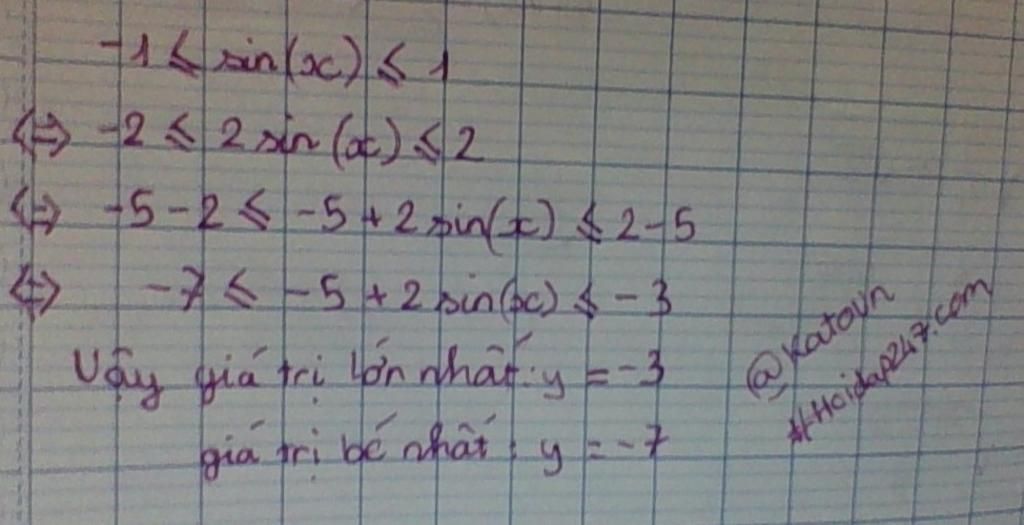 -1 ≤ sin(x) ≤ 1
⇔ -2 ≤ 2 sin(x) ≤ 2
⇔ -5 - 2 ≤ -5 + 2 sin(x) ≤ 2 - 5
⇔ -7 ≤ -5 + 2 sin(x) ≤ -3
Vậy giá trị lớn nhất: y = -3
giá trị bé nhất: y = -7
@Katovn
#Hoidap247.com